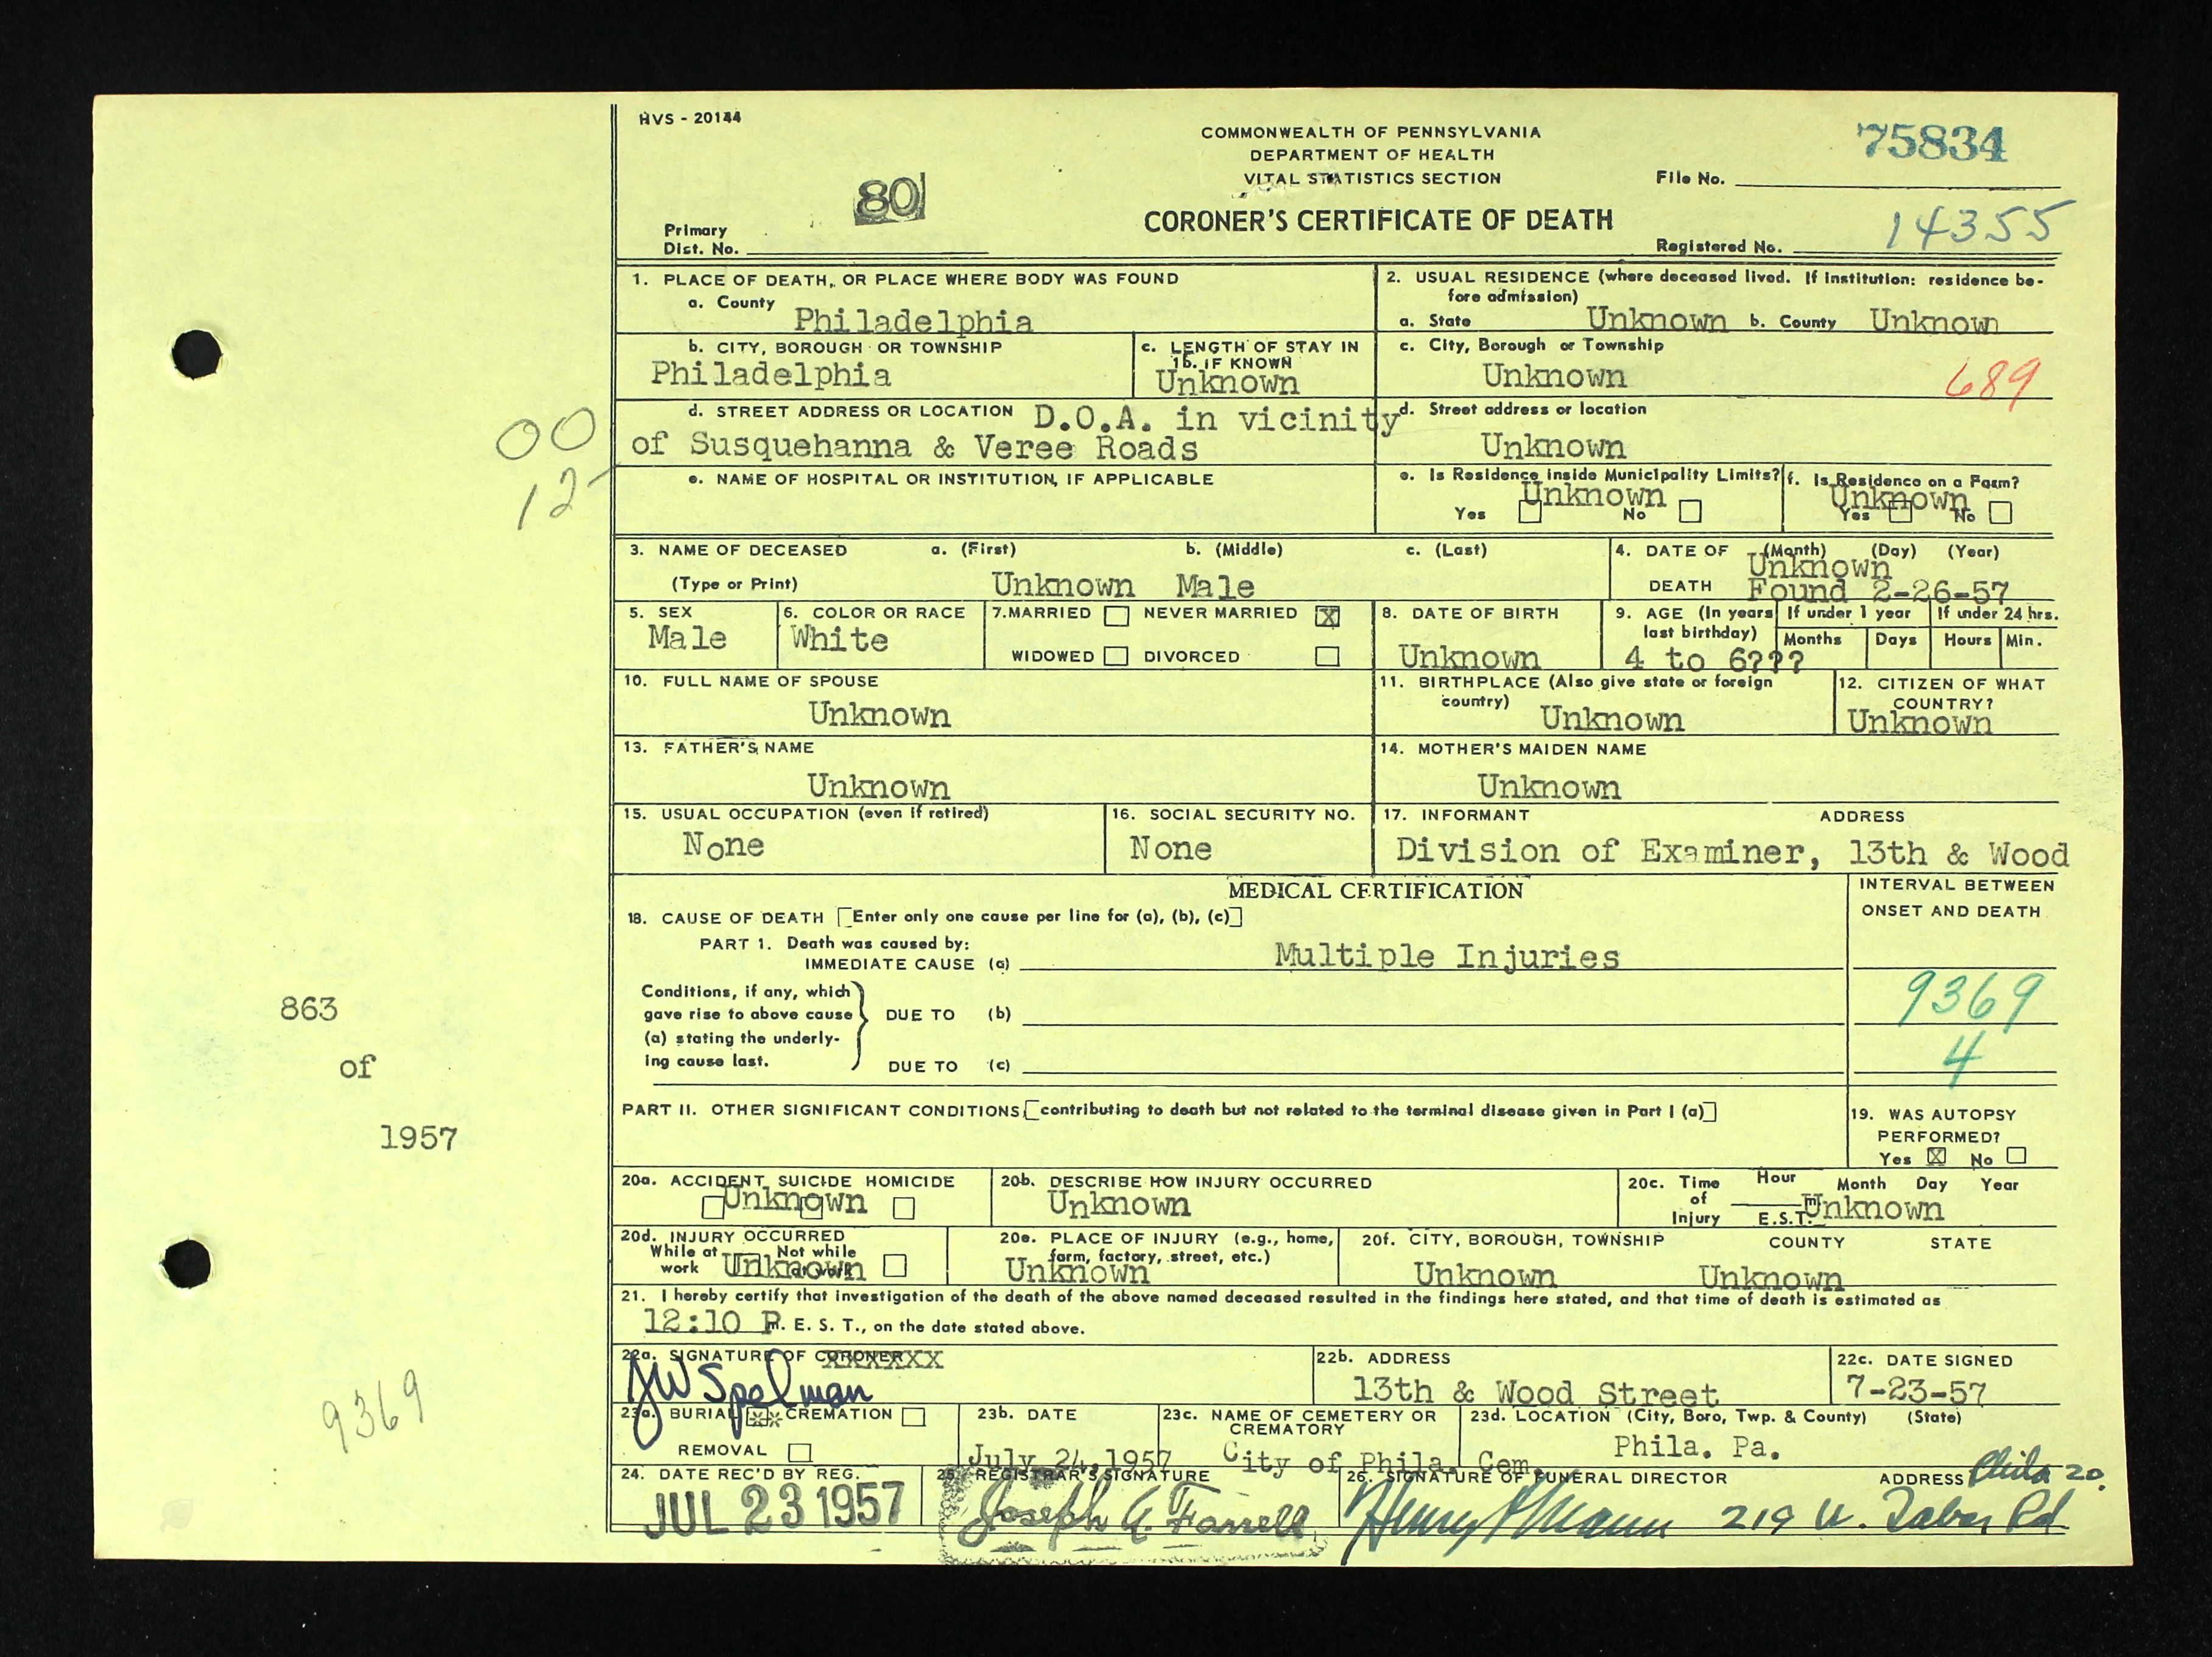 HVS - 20144
COMMONWEALTH OF PENNSYLVANIA
DEPARTMENT OF HEALTH
VITAL STATISTICS SECTION
75834
File No.
80
CORONER'S CERTIFICATE OF DEATH
Primary
Dist. No.
Registered No. 14355
1. PLACE OF DEATH, OR PLACE WHERE BODY WAS FOUND
a. County Philadelphia
2. USUAL RESIDENCE (where deceased lived. If institution: residence be-
fore admission)
a. State Unknown b. County Unknown
b. CITY, BOROUGH OR TOWNSHIP
Philadelphia
c. LENGTH OF STAY IN
1b. IF KNOWN
Unknown
c. City, Borough or Township
Unknown
689
d. STREET ADDRESS OR LOCATION D.O.A. in vicinity
of Susquehanna & Veree Roads
d. Street address or location
Unknown
00
12
e. NAME OF HOSPITAL OR INSTITUTION, IF APPLICABLE
e. Is Residence inside Municipality Limits?
Unknown
Yes No
f. Is Residence on a Farm?
Unknown
Yes No
3. NAME OF DECEASED a. (First) b. (Middle) c. (Last)
(Type or Print) Unknown Male
4. DATE OF (Month) (Day) (Year)
Unknown
DEATH Found 2-26-57
5. SEX
Male
6. COLOR OR RACE
White
7. MARRIED NEVER MARRIED X
WIDOWED DIVORCED
8. DATE OF BIRTH
Unknown
9. AGE (In years
last birthday)
4 to 6???
If under 1 year
Months Days
If under 24 hrs.
Hours Min.
10. FULL NAME OF SPOUSE
Unknown
11. BIRTHPLACE (Also give state or foreign
country)
Unknown
12. CITIZEN OF WHAT
COUNTRY?
Unknown
13. FATHER'S NAME
Unknown
14. MOTHER'S MAIDEN NAME
Unknown
15. USUAL OCCUPATION (even if retired)
None
16. SOCIAL SECURITY NO.
None
17. INFORMANT ADDRESS
Division of Examiner, 13th & Wood
MEDICAL CERTIFICATION
INTERVAL BETWEEN
ONSET AND DEATH
18. CAUSE OF DEATH [Enter only one cause per line for (a), (b), (c)]
PART 1. Death was caused by:
IMMEDIATE CAUSE (a) Multiple Injuries
Conditions, if any, which
gave rise to above cause
(a) stating the underly-
ing cause last.
DUE TO (b)
DUE TO (c)
9369
4
863
of
1957
PART II. OTHER SIGNIFICANT CONDITIONS [contributing to death but not related to the terminal disease given in Part I (a)]
19. WAS AUTOPSY
PERFORMED?
Yes X No
20a. ACCIDENT SUICIDE HOMICIDE
Unknown
20b. DESCRIBE HOW INJURY OCCURRED
Unknown
20c. Time
of
Injury
Hour Month Day Year
m
E.S.T. Unknown
20d. INJURY OCCURRED
While at
work
Not while
at work
Unknown
20e. PLACE OF INJURY (e.g., home,
farm, factory, street, etc.)
Unknown
20f. CITY, BOROUGH, TOWNSHIP COUNTY STATE
Unknown Unknown
21. I hereby certify that investigation of the death of the above named deceased resulted in the findings here stated, and that time of death is estimated as
12:10 P. E. S. T., on the date stated above.
22a. SIGNATURE OF CORONER XXXXXXX
JW Spelman
22b. ADDRESS
13th & Wood Street
22c. DATE SIGNED
7-23-57
9369
23a. BURIAL CREMATION
REMOVAL
23b. DATE
July 24, 1957
23c. NAME OF CEMETERY OR
CREMATORY
City of Phila. Cem.
23d. LOCATION (City, Boro, Twp. & County) (State)
Phila. Pa.
24. DATE REC'D BY REG.
JUL 23 1957
25. REGISTRAR'S SIGNATURE
Joseph A. Farrell
26. SIGNATURE OF FUNERAL DIRECTOR ADDRESS Phila 20.
Henry P Mann 219 W. Tabor Rd